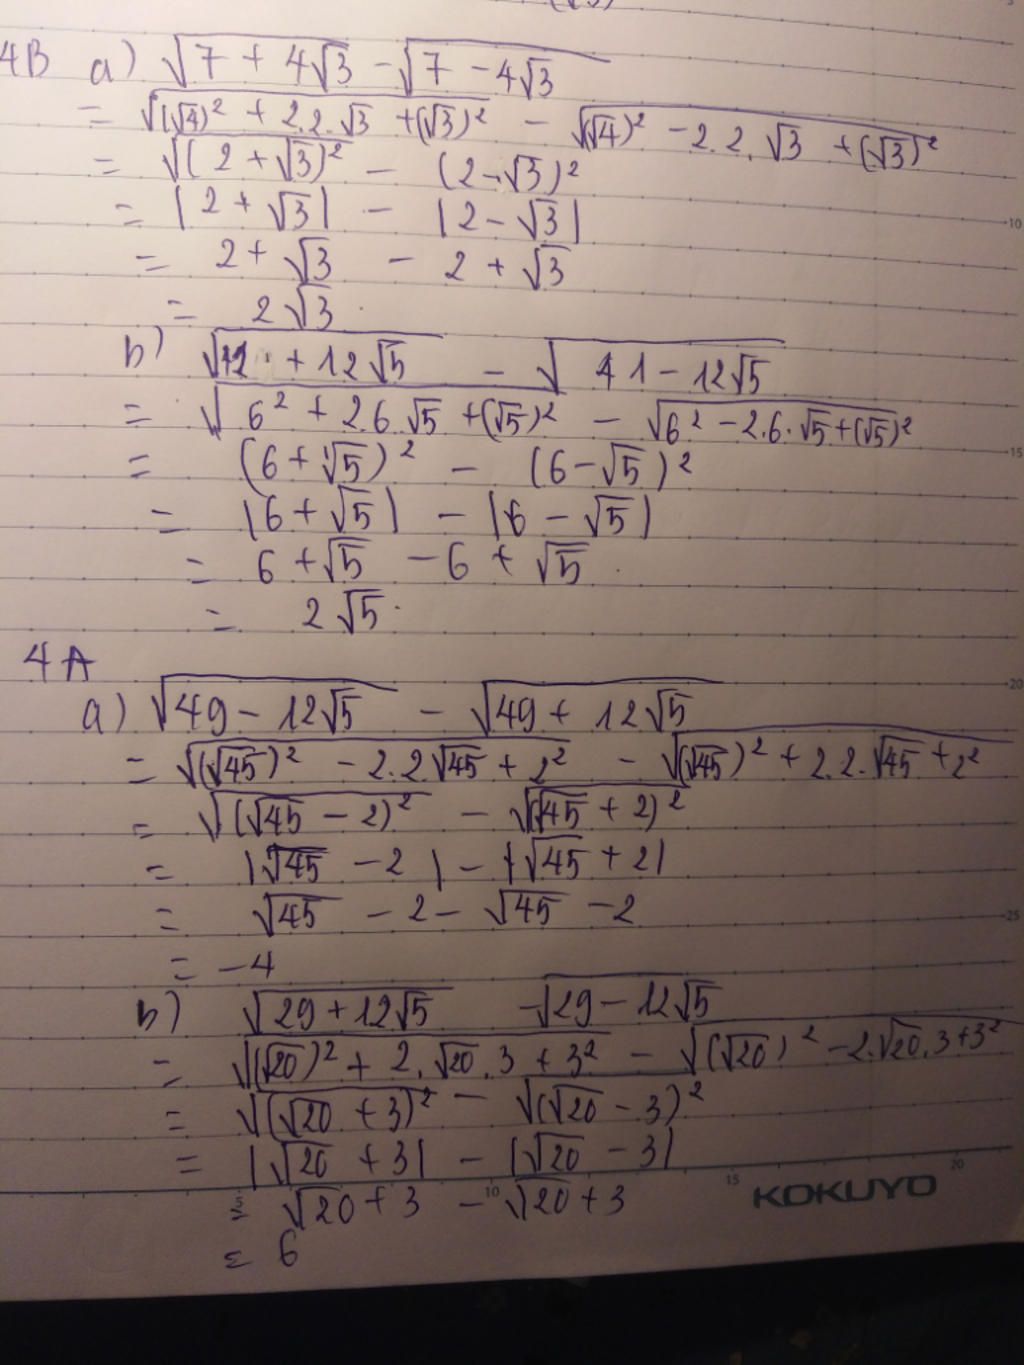 4B a) √7 + 4√3 - √7 - 4√3
= √(√4)² + 2.2.√3 + (√3)² - √(√4)² - 2.2.√3 + (√3)²
= √(2 + √3)² - (2 - √3)²
= |2 + √3| - |2 - √3|
= 2 + √3 - 2 + √3
= 2√3
b) + 12√5 - √41 - 12√5
= √6² + 2.6.√5 + (√5)² - √6² - 2.6.√5 + (√5)²
= (6 + √5)² - (6 - √5)²
= |6 + √5| - |6 - √5|
= 6 + √5 - 6 + √5
= 2√5.
4A
a) √49 - 12√5 - √49 + 12√5
= √(√45)² - 2.2.√45 + 2² - √(√45)² + 2.2.√45 + 2²
= √(√45 - 2)² - √(√45 + 2)²
= |√45 - 2| - |√45 + 2|
= √45 - 2 - √45 - 2
= -4
b) √29 + 12√5 - √29 - 12√5
= √(√20)² + 2.√20.3 + 3² - √(√20)² - 2.√20.3 + 3²
= √(√20 + 3)² - √(√20 - 3)²
= |√20 + 3| - |√20 - 3|
= √20 + 3 - √20 + 3
= 6
5 10 15 20
KOKUYO
10
15
20
25